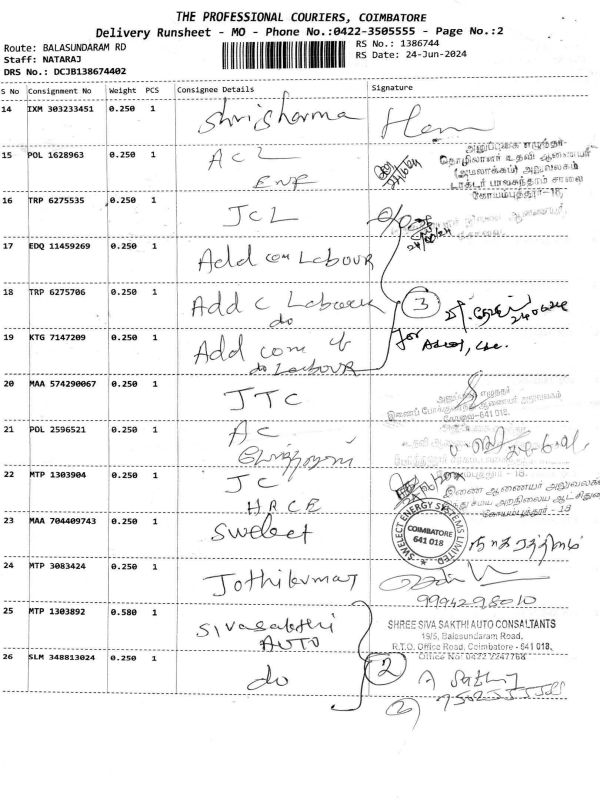 THE PROFESSIONAL COURIERS, COIMBATORE
Delivery Runsheet - MO - Phone No.:0422-3505555 - Page No.:2
Route: BALASUNDARAM RD
RS No.: 1386744
Staff: NATARAJ
RS Date: 24-Jun-2024
DRS No.: DCJB138674402
S No Consignment No Weight PCS Consignee Details Signature
14 IXM 303233451 0.250 1 Shrisharma
15 POL 1628963 0.250 1 ACL
அனுப்புகை எழுத்தர்
தொழிலாளர் உதவி ஆணையர்
(அமலாக்கம்) அலுவலகம்
டாக்டர் பாலசுந்தரம் சாலை
கோயம்புத்தூர்-18
ENF
16 TRP 6275535 0.250 1 JCL
17 EDQ 11459269 0.250 1 Add com Labour
18 TRP 6275706 0.250 1 Add c Labour
do
3
24/06/24
for
19 KTG 7147209 0.250 1 Add com
do Labour
20 MAA 574290067 0.250 1 JTC
641 018.
21 POL 2596521 0.250 1 AC
22 MTP 1303904 0.250 1 JC
H.R.C.E
இணை ஆணையர் அலுவலகம்
கோயம்புத்தூர் - 18
23 MAA 704409743 0.250 1 Swelect
SWELECT ENERGY SYSTEMS LIMITED
COIMBATORE
641 018
24 MTP 3083424 0.250 1 Jothikumar
9994298010
25 MTP 1303892 0.580 1 Sivasakthi
AUTO
SHREE SIVA SAKTHI AUTO CONSALTANTS
19/5, Balasundaram Road,
R.T.O. Office Road, Coimbatore - 641 018.
Office No: 0422 2247768
26 SLM 348813024 0.250 1 do
2
2